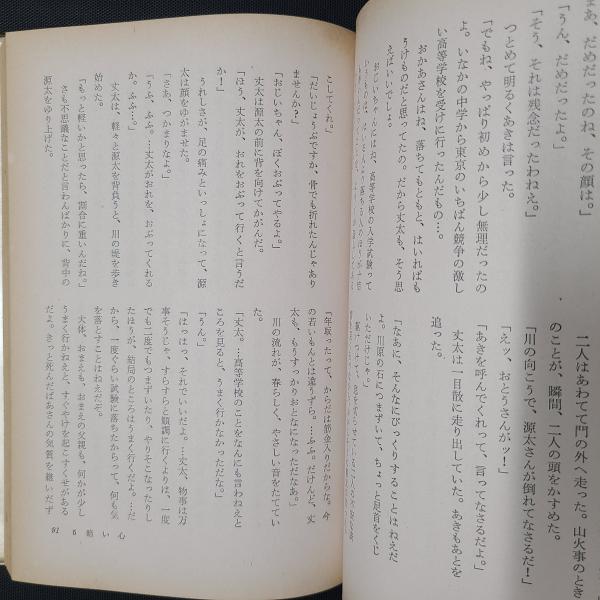 まあ、だめだったのね、その顔は。」
「うん、だめだったよ。」
「そう、それは残念だったわねえ。」
つとめて明るくあきは言った。
「でもね、やっぱり初めから少し無理だったの
よ。いなかの中学から東京のいちばん競争の激し
い高等学校を受けに行ったんだもの…。
おかあさんはね、落ちてもともと、はいればも
うけものだと思ってたの。だから丈太も、そう思
えばいいでしょ。
おじいちゃんにはね、高等学校の入学試験って
二人はあわてて門の外へ走った。山火事のとき
のことが、瞬間、二人の頭をかすめた。
「川の向こうで、源太さんが倒れてなさるだ!」
「えッ、おとうさんがッ!」
「あきを呼んでくれって、言ってなさるだよ。」
丈太は一目散に走り出していた。あきもあとを
追った。
「なあに、そんなにびっくりすることはねえだ
よ。川原の石につまずいて、ちょっと足首をくじ
いただけじゃ。」
こしてくれ。」
「だいじょうぶですか、骨でも折れたんじゃあり
ませんか?」
「おじいちゃん、ぼくおぶってやるよ。」
丈太は源太の前に背を向けてかがんだ。
「ほう、丈太が、おれをおぶって行くと言うだ
か!」
うれしさが、足の痛みといっしょになって、源
太は顔をゆがませた。
「さあ、つかまりなよ。」
「うふ、ふふ。…丈太がおれを、おぶってくれる
か。ふふ…。」
丈太は、軽々と源太を背負うと、川の堤を歩き
始めた。
「もっと軽いかと思ったら、割合に重いんだね。」
さも不思議なことだと言わんばかりに、背中の
源太をゆり上げた。
「年取ったって、からだは筋金入りだからな。今
の若いもんとは違うずら。…ふふ。だけんど、丈
太も、もうすっかりおとなになっただなあ。」
川の流れが、春らしく、やさしい音をたててい
た。
「丈太。…高等学校のことをなんにも言わねえと
ころを見ると、うまく行かなかっただな。」
「うん。」
「はっはっ、それでいいだよ。…丈太、物事は万
事そうじゃ、すらすらと順調に行くよりは、一度
でも二度でもつまずいたり、やりそこなったりし
たほうが、結局のところはうまく行くだよ。…だ
から、一度ぐらい試験に落ちたからって、何も気
を落とすことはねえだぞ。
大体、おまえも、おまえの父親も、何かが少し
うまく行かねえと、すぐやけを起こすくせがある
だよ。きっと死んだばあさんの気質を継いだず
91　6　暗い心